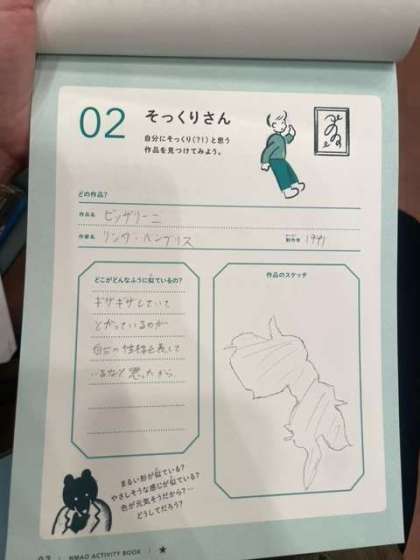 02
そっくりさん
自分にそっくり(?!)と思う
作品を見つけてみよう。
どの作品?
作品名 ピッザリーニ
作家名 リンダ・ベングリス 制作年 1991
どこがどんなふうに似ているの?
作品のスケッチ
ギザギザしていて
とがっているのが
自分の性格を表して
いるなと思ったから
まるい形が似ている?
やさしそうな感じが似ている?
色が元気そうだから?…
どうしてだろう?
NMAO ACTIVITY BOOK